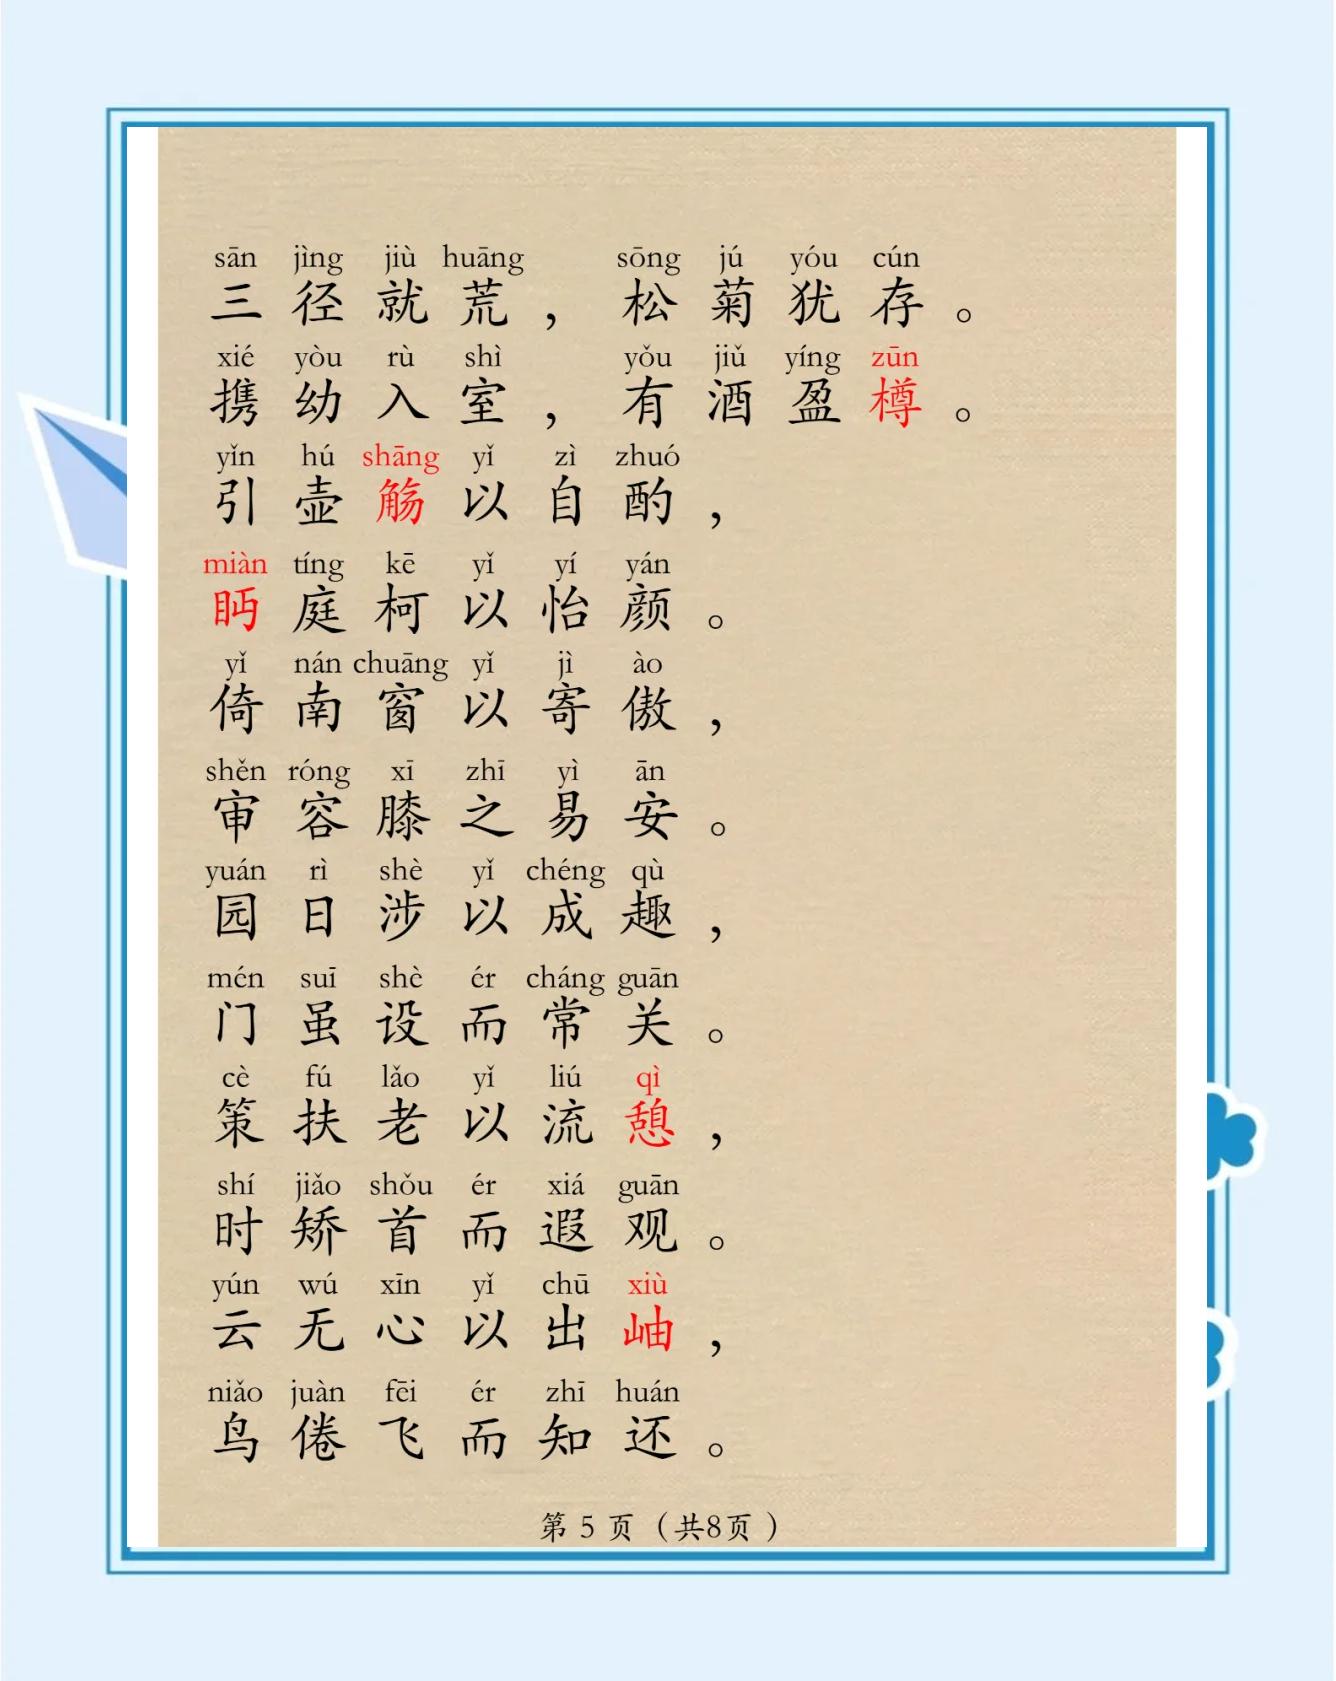 sān jìng jiù huāng sōng jú yóu cún
三径就荒，松菊犹存。
xié yòu rù shì yǒu jiǔ yíng zūn
携幼入室，有酒盈樽。
yǐn hú shāng yǐ zì zhuó
引壶觞以自酌，
miàn tíng kē yǐ yí yán
眄庭柯以怡颜。
yǐ nán chuāng yǐ jì ào
倚南窗以寄傲，
shěn róng xī zhī yì ān
审容膝之易安。
yuán rì shè yǐ chéng qù
园日涉以成趣，
mén suī shè ér cháng guān
门虽设而常关。
cè fú lǎo yǐ liú qì
策扶老以流憩，
shí jiǎo shǒu ér xiá guān
时矫首而遐观。
yún wú xīn yǐ chū xiù
云无心以出岫，
niǎo juàn fēi ér zhī huán
鸟倦飞而知还。
第 5 页（共8页）